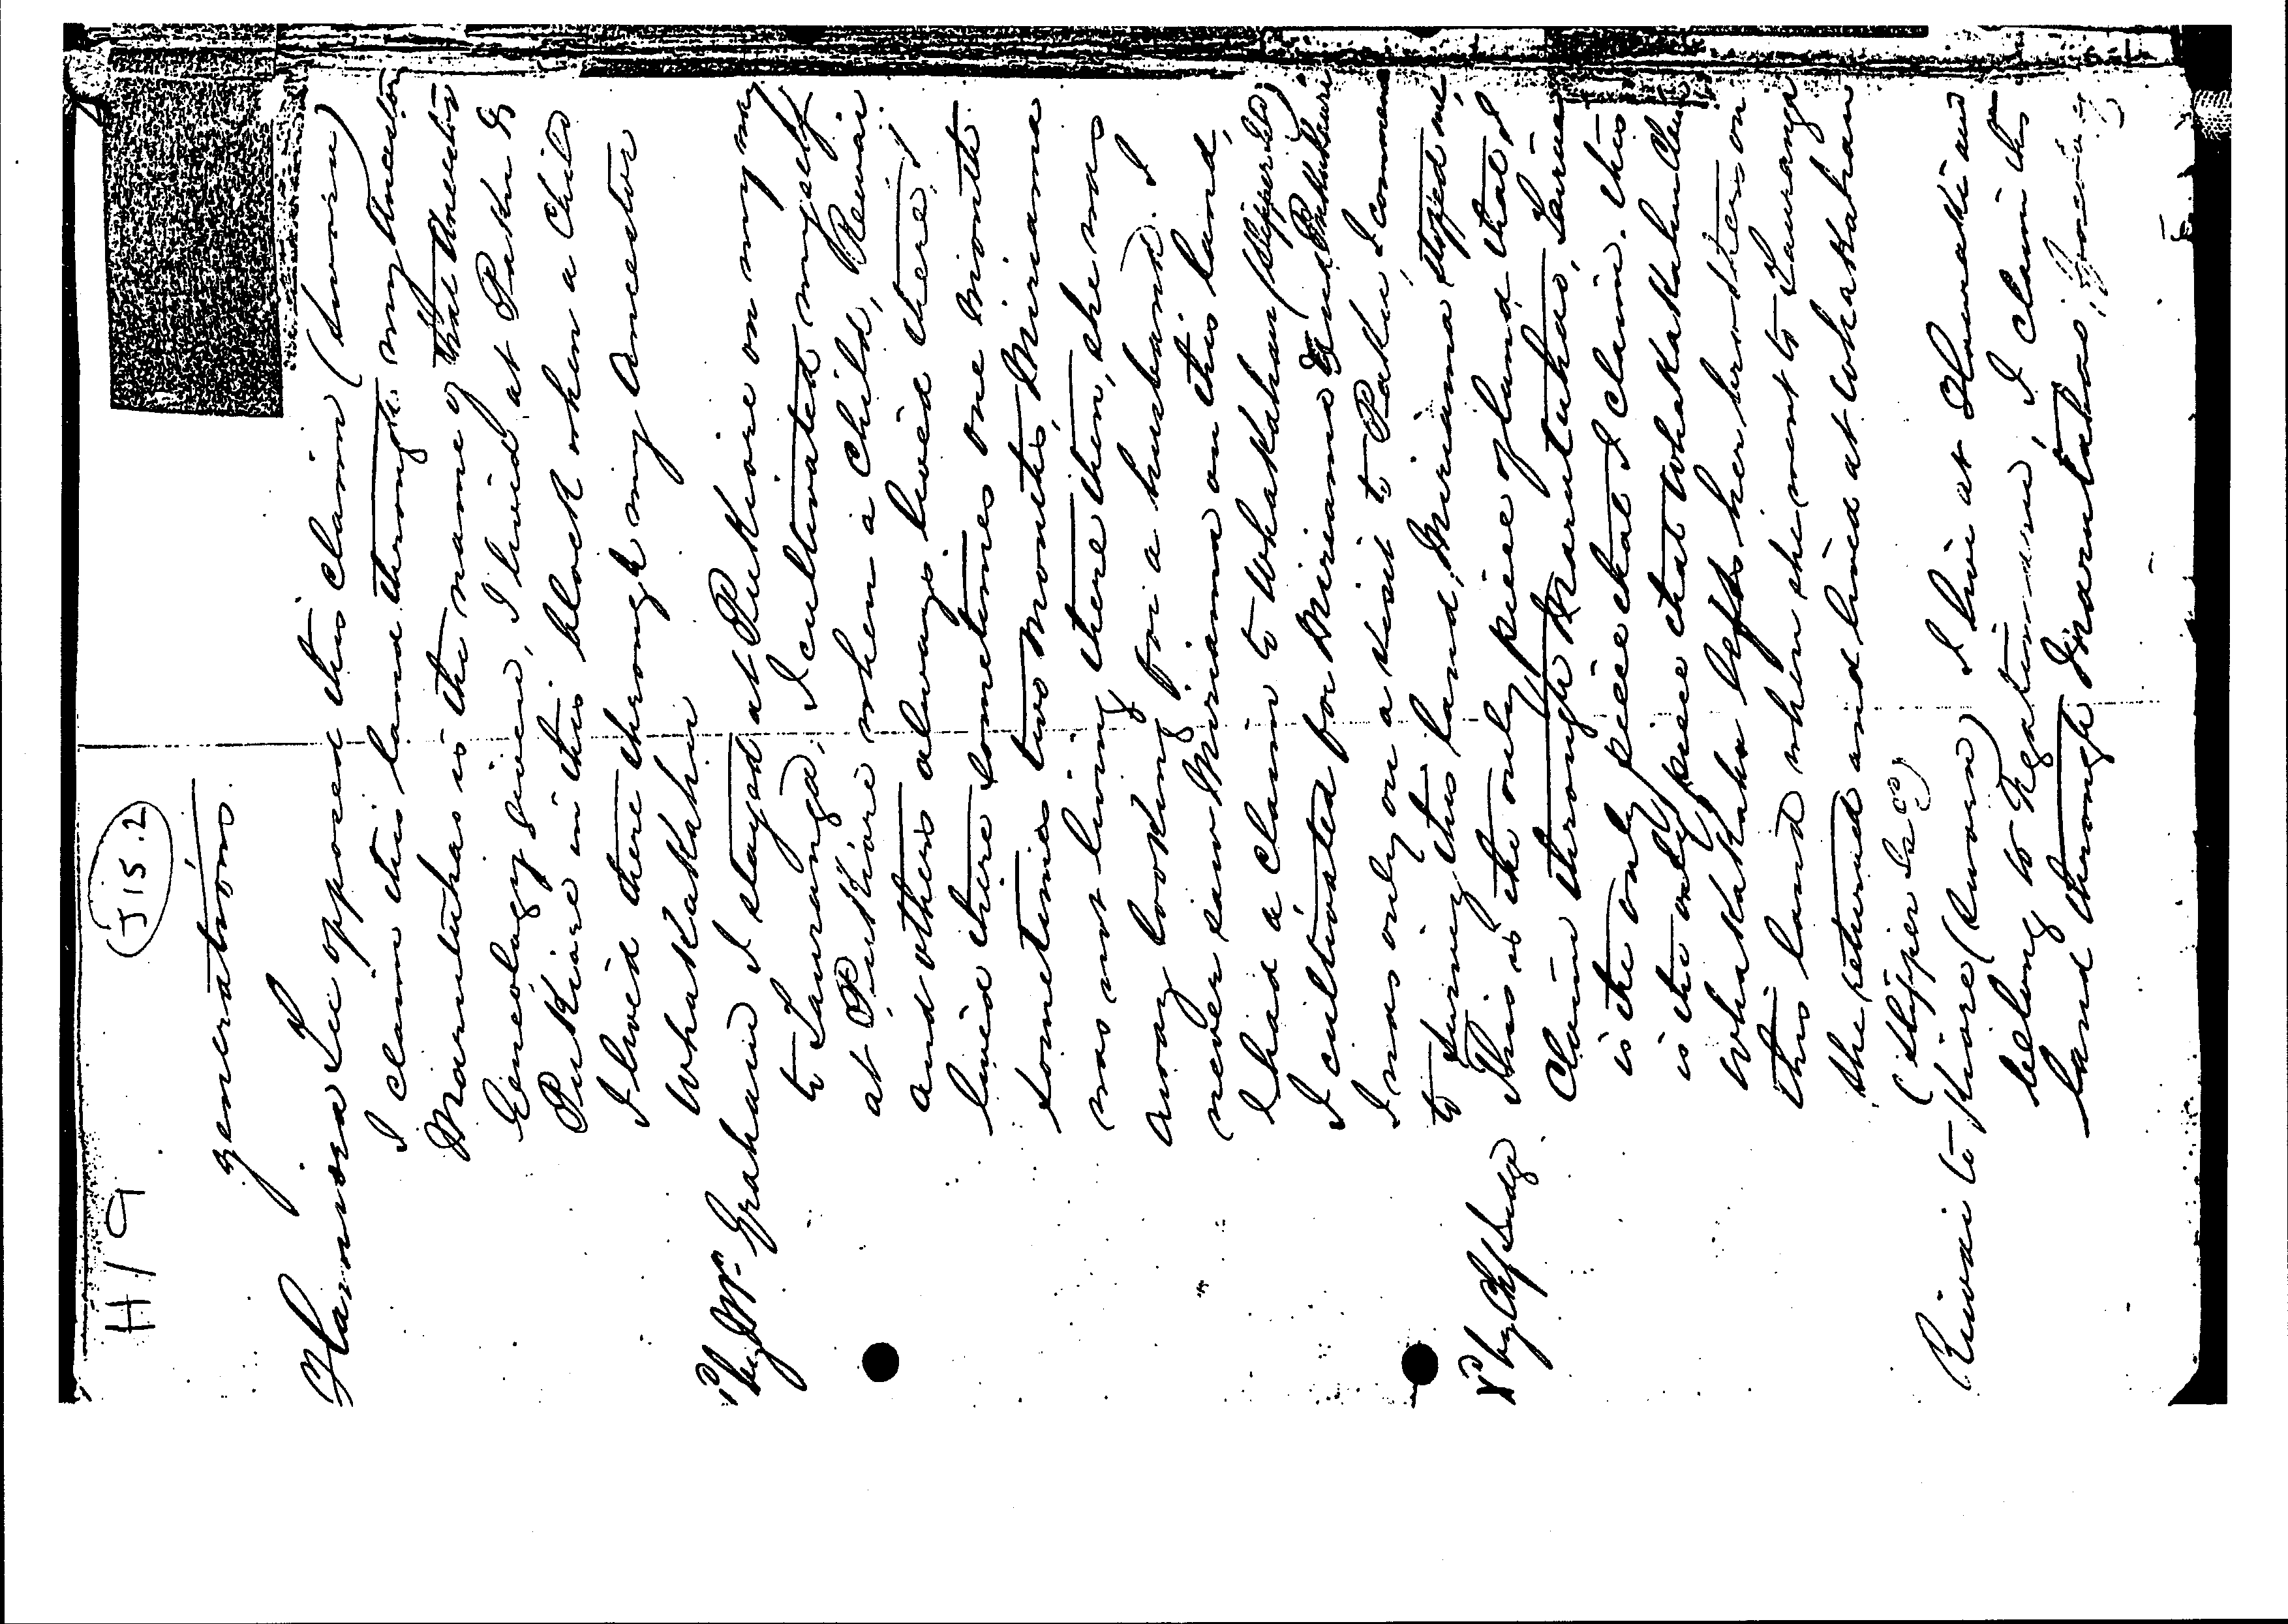 H19
J15.2
generations.
Harawira Te opposed this claim (sworn)
I claim this land through my Ancestor
Marutuhas is the name of that Ancestor
Geneology given, I lived at Pakhu &
Pukkiore in this block when a child
I lived there through my Ancestor
Whakkakahu
Xd by Mr. Graham I stayed at Pukkiore on my way
to Tauranga, I cultivated myself
at Pukkiore when a child, Rewai
and others always lived there, I
lived there sometimes one month
sometimes two months, Miriama
was not living there then, she was
away looking for a husband. I
never saw Miriama on this land,
I had a claim to Whakkahau
I cultivated for Miriama &
I was only on a visit to Pakhu, I commenced
to survey this land, Miriama stopped me,
Xd by Chf Judge This is the only piece of land that I
Claim through Marutuhas,
is the only piece that I claim. this
is the only piece that Whakkakahu
Whakkakahu left her brothers on
this land when she went to Tauranga
she returned and lived at Whakkahau
(Slipper
Riwai te Kiore (sworn) I live at Hauraki and
belong to Ngatimaru, I claim this
land through Marutuhas,